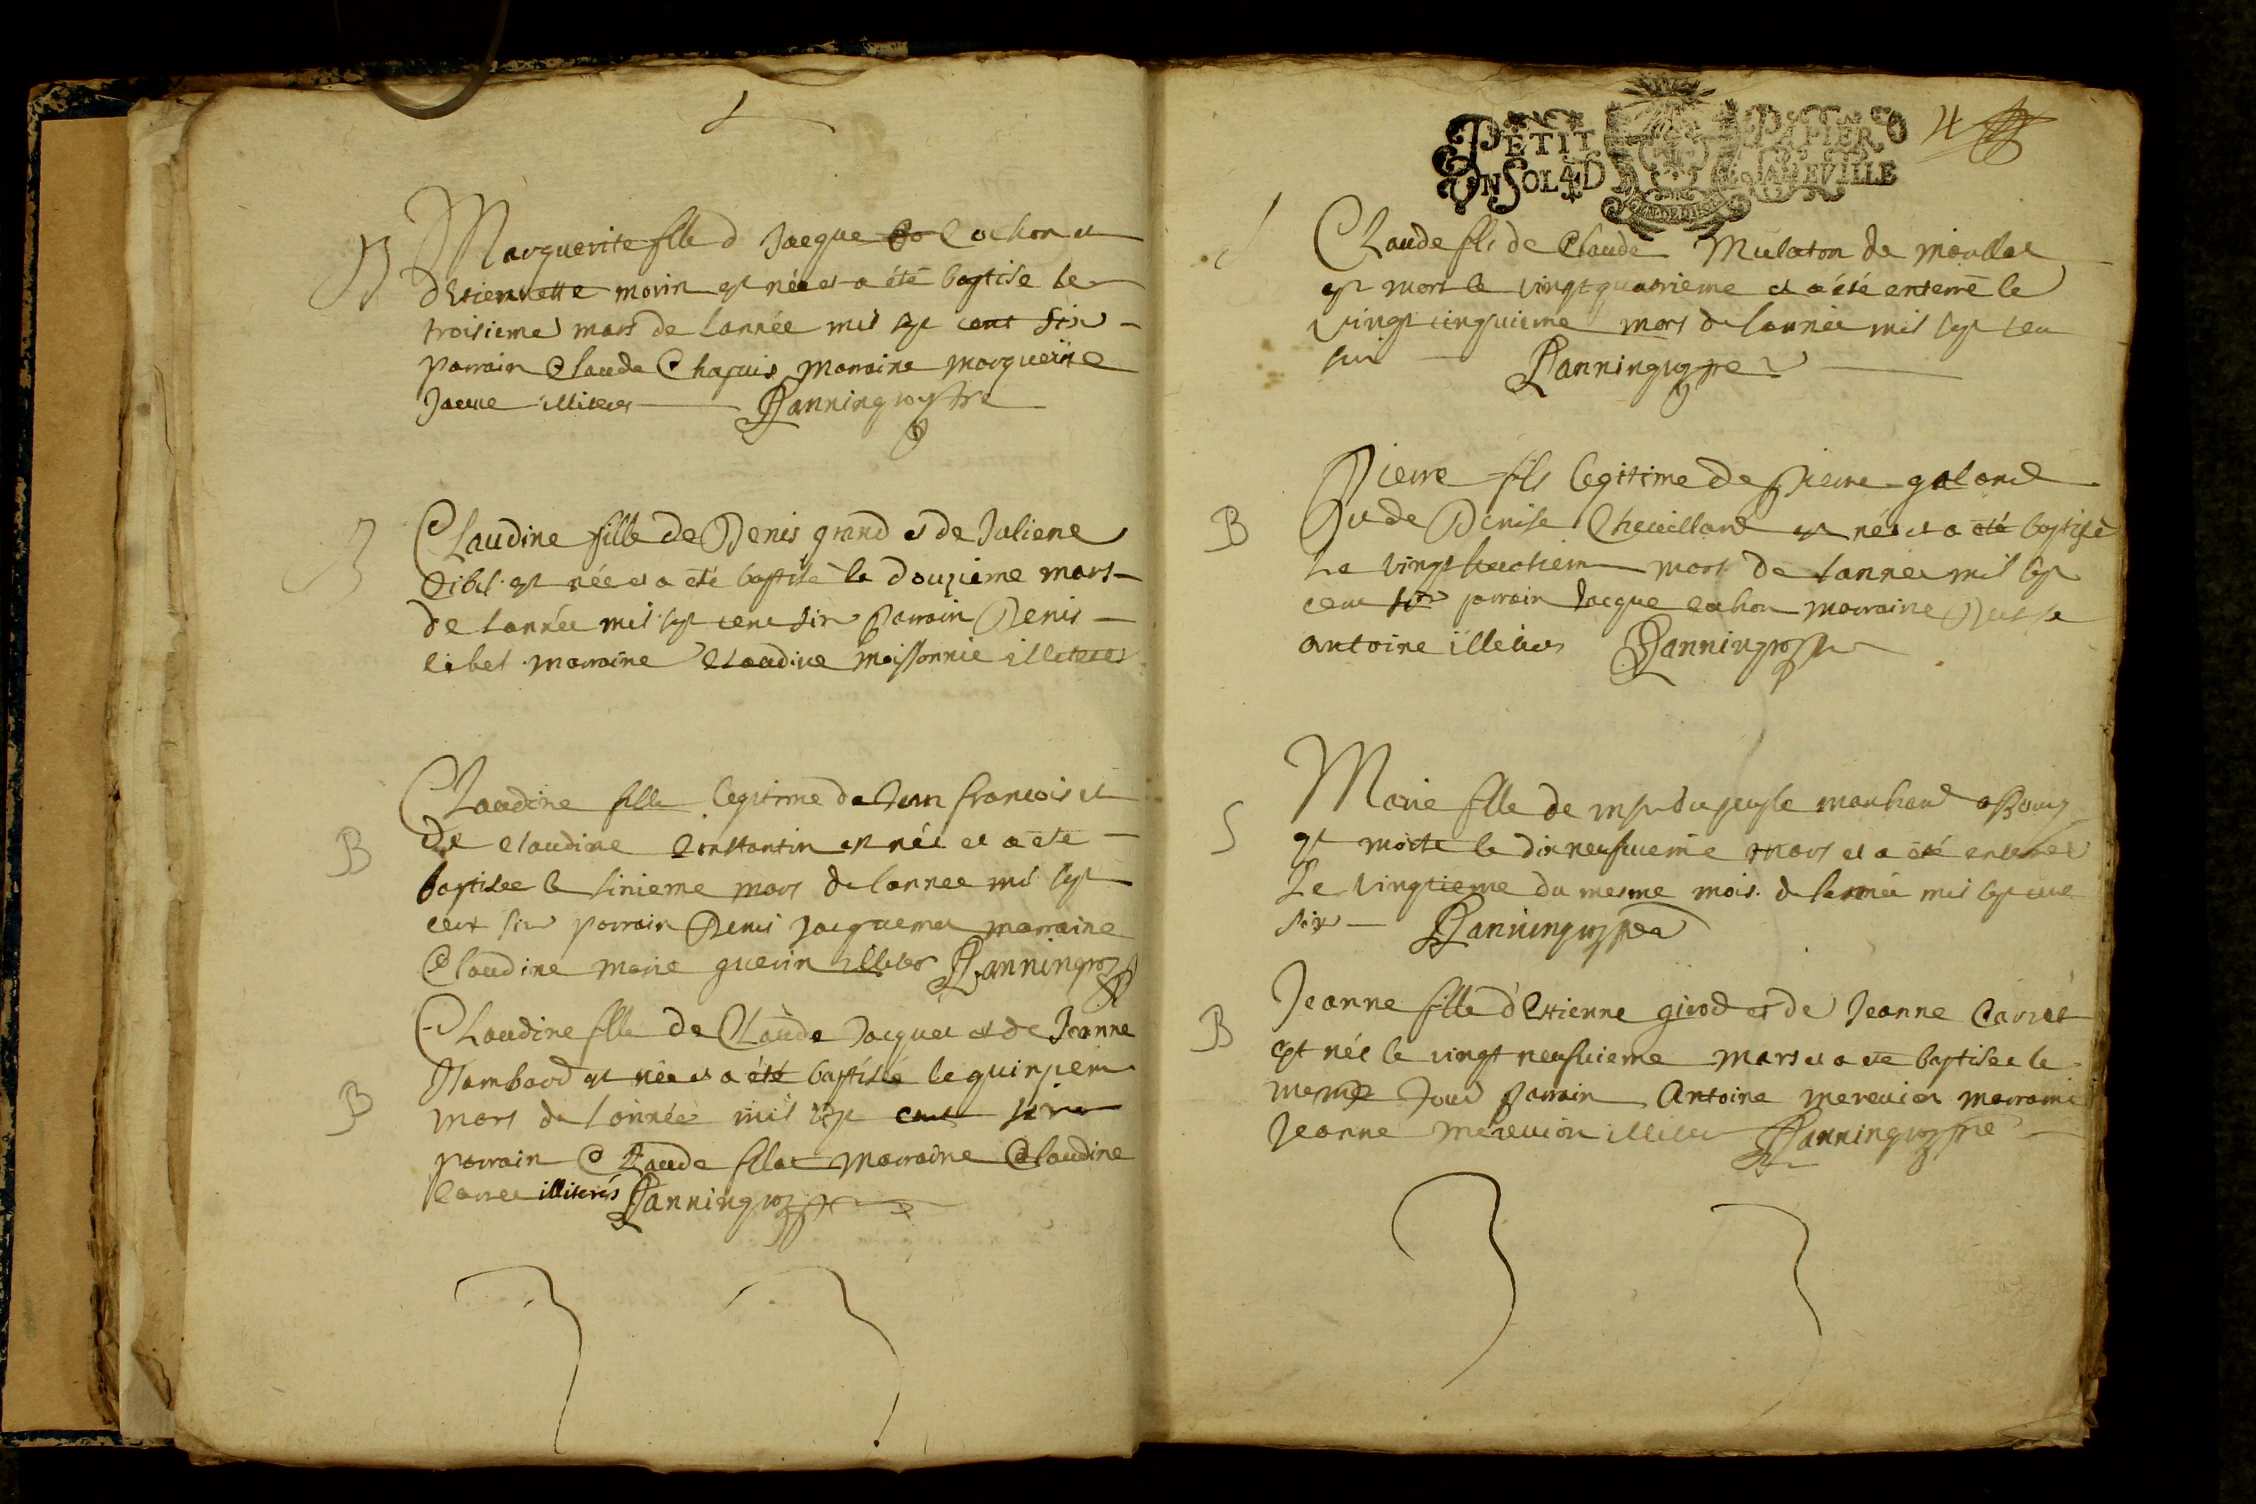 B
Marguerite fille d Jacque Cochon et
dEtiennette morin est née et a été baptise le
troisieme mars de lannée mil sept cent six
parrain Claude Chapuis marraine marguerite
illiteres Pannin
B
Claudine fille de Denis grand et de Juliene
libel est née et a été baptisé le douzieme mars
de lannée mil sept cent six parrain Denis
libel marraine Claudine moissonnie illiteres
B
Claudine fille legitime de Jean francois et
de claudine Constantin est née et a été
baptisee le sixieme mars de lannee mil sept
cent six parrain Denis Jacquemet marraine
Claudine marie guerin illiteres Pannin
B
Claudine fille de Claude Jacquet et de Jeanne
est née et a été baptisée le quinzieme
mars de lannée mil sept cent six
parrain Claude marraine Claudine
illiterés Pannin
PETIT PAPIER
UN SOL 4 D
4
Claude fils de Claude Mulaton de
est mort le vingt quatrieme et a été enterré le
vingt cinquieme mars de lannée mil sept cent
six Pannin
B
Pierre fils legitime de Pierre galand
et de Denise Chevilland est né et a été baptisé
Le vingt huitieme mars de lannée mil sept
cent six parrain Jacque cochon marraine Denise
antoine illeteres Pannin
S
Marie fille de marchand a Bourg
est morte le dixneufvieme mars et a été enterrée
Le vingtieme du mesme mois de lannée mil sept cent
six Pannin
B
Jeanne fille d'Etienne girod et de Jeanne Carret
est née le vingt neufvieme mars et a été baptisee le
mesme jour parrain Antoine marraine
Jeanne illiteres Pannin